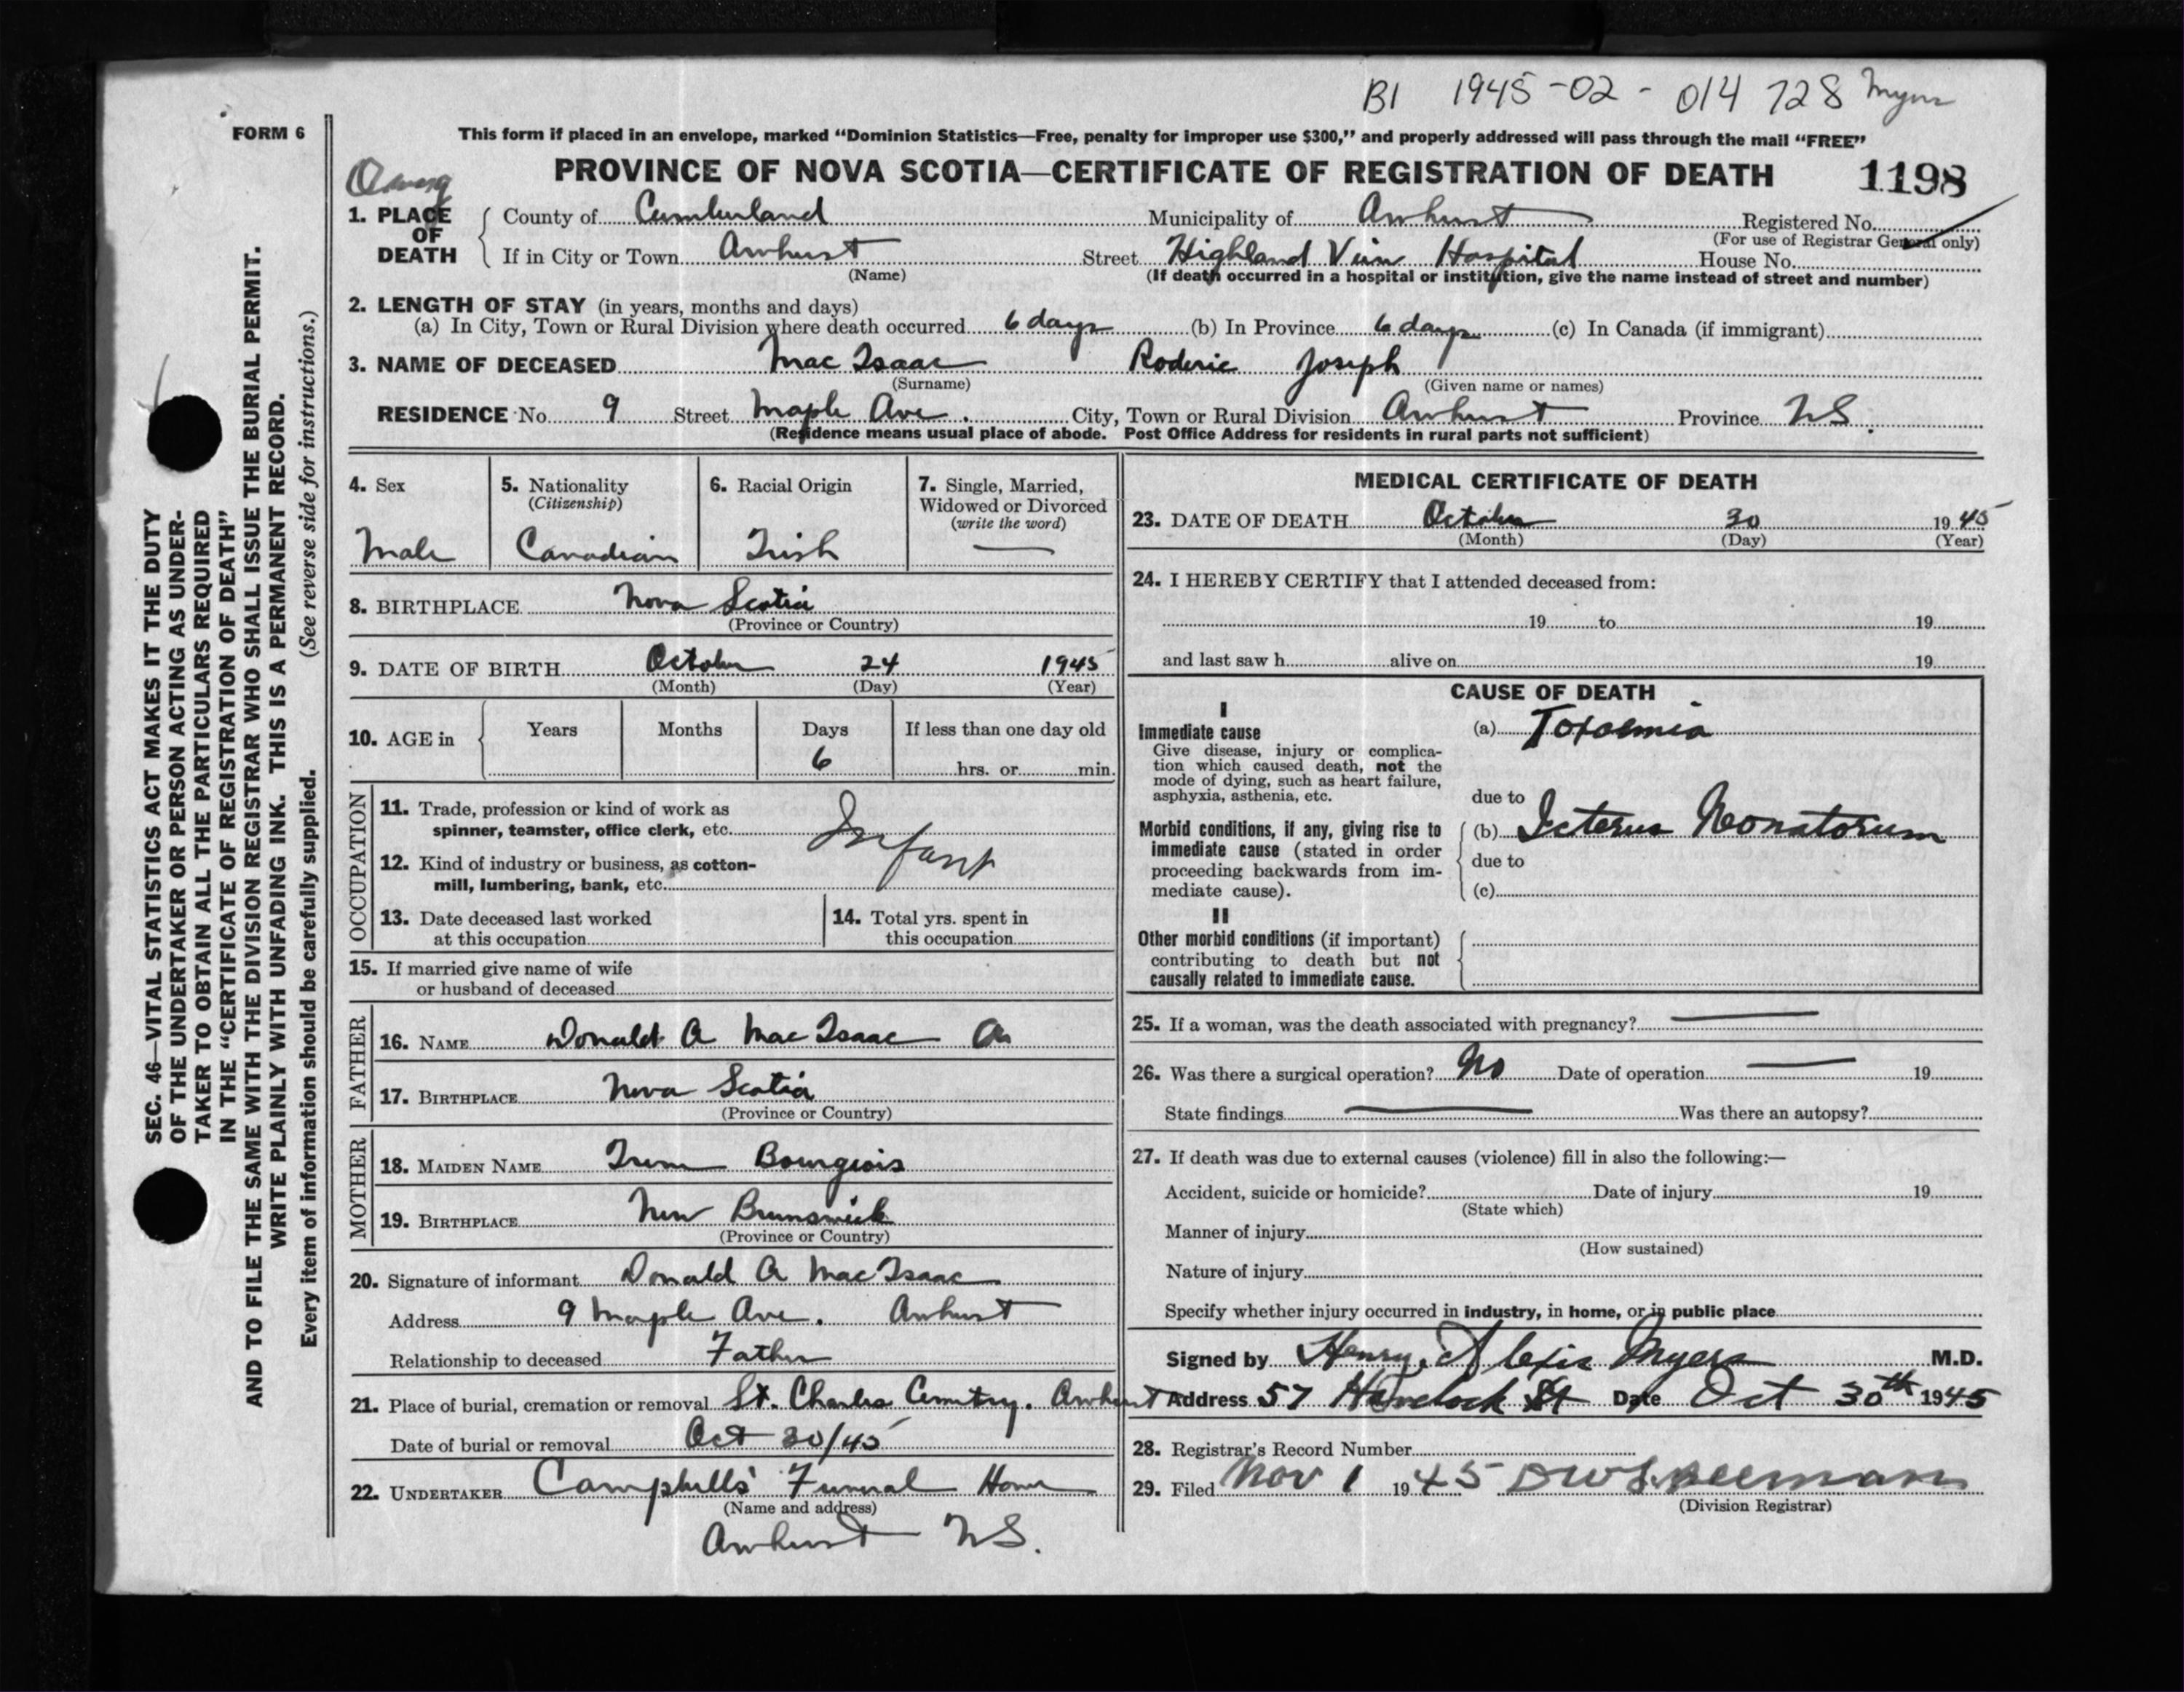 B1 1945-02-014 728 Myers
FORM 6
This form if placed in an envelope, marked “Dominion Statistics—Free, penalty for improper use $300,” and properly addressed will pass through the mail “FREE”
PROVINCE OF NOVA SCOTIA—CERTIFICATE OF REGISTRATION OF DEATH 1198
1. PLACE OF DEATH
County of Cumberland Municipality of Amherst Registered No.
(For use of Registrar General only)
If in City or Town Amherst Street Highland View Hospital House No.
(Name) (If death occurred in a hospital or institution, give the name instead of street and number)
2. LENGTH OF STAY (in years, months and days)
(a) In City, Town or Rural Division where death occurred 6 days (b) In Province 6 days (c) In Canada (if immigrant)
3. NAME OF DECEASED Mac Isaac Roderic Joseph
(Surname) (Given name or names)
RESIDENCE No. 9 Street Maple Ave. City, Town or Rural Division Amherst Province N.S.
(Residence means usual place of abode. Post Office Address for residents in rural parts not sufficient)
4. Sex
Male
5. Nationality
(Citizenship)
Canadian
6. Racial Origin
Irish
7. Single, Married,
Widowed or Divorced
(write the word)
—
8. BIRTHPLACE Nova Scotia
(Province or Country)
9. DATE OF BIRTH October 24 1945
(Month) (Day) (Year)
10. AGE in Years Months Days If less than one day old
6 hrs. or min.
OCCUPATION
11. Trade, profession or kind of work as
spinner, teamster, office clerk, etc. Infant
12. Kind of industry or business, as cotton-
mill, lumbering, bank, etc.
13. Date deceased last worked
at this occupation
14. Total yrs. spent in
this occupation
15. If married give name of wife
or husband of deceased
FATHER
16. NAME Donald A MacIsaac
17. BIRTHPLACE Nova Scotia
(Province or Country)
MOTHER
18. MAIDEN NAME Irene Bourgeois
19. BIRTHPLACE New Brunswick
(Province or Country)
20. Signature of informant Donald A MacIsaac
Address 9 Maple Ave. Amherst
Relationship to deceased Father
21. Place of burial, cremation or removal St. Charles Cemetry. Amherst
Date of burial or removal Oct 30/45
22. UNDERTAKER Campbells' Funeral Home
(Name and address)
Amherst N.S.
MEDICAL CERTIFICATE OF DEATH
23. DATE OF DEATH October 30 1945
(Month) (Day) (Year)
24. I HEREBY CERTIFY that I attended deceased from:
19 to 19
and last saw h alive on 19
CAUSE OF DEATH
I
Immediate cause
Give disease, injury or complica-
tion which caused death, not the
mode of dying, such as heart failure,
asphyxia, asthenia, etc.
(a) Toxaemia
due to
Morbid conditions, if any, giving rise to
immediate cause (stated in order
proceeding backwards from im-
mediate cause).
(b) Icterus Neonatorum
due to
(c)
II
Other morbid conditions (if important)
contributing to death but not
causally related to immediate cause.
25. If a woman, was the death associated with pregnancy? —
26. Was there a surgical operation? No Date of operation — 19
State findings — Was there an autopsy?
27. If death was due to external causes (violence) fill in also the following:—
Accident, suicide or homicide? Date of injury 19
(State which)
Manner of injury
(How sustained)
Nature of injury
Specify whether injury occurred in industry, in home, or in public place
Signed by Henry Alexis Myers M.D.
Address 57 Havelock St Date Oct 30th 1945
28. Registrar's Record Number
29. Filed Nov 1 1945
(Division Registrar)
SEC. 46—VITAL STATISTICS ACT MAKES IT THE DUTY
OF THE UNDERTAKER OR PERSON ACTING AS UNDER-
TAKER TO OBTAIN ALL THE PARTICULARS REQUIRED
IN THE “CERTIFICATE OF REGISTRATION OF DEATH”
AND TO FILE THE SAME WITH THE DIVISION REGISTRAR WHO SHALL ISSUE THE BURIAL PERMIT.
WRITE PLAINLY WITH UNFADING INK. THIS IS A PERMANENT RECORD.
Every item of information should be carefully supplied. (See reverse side for instructions.)